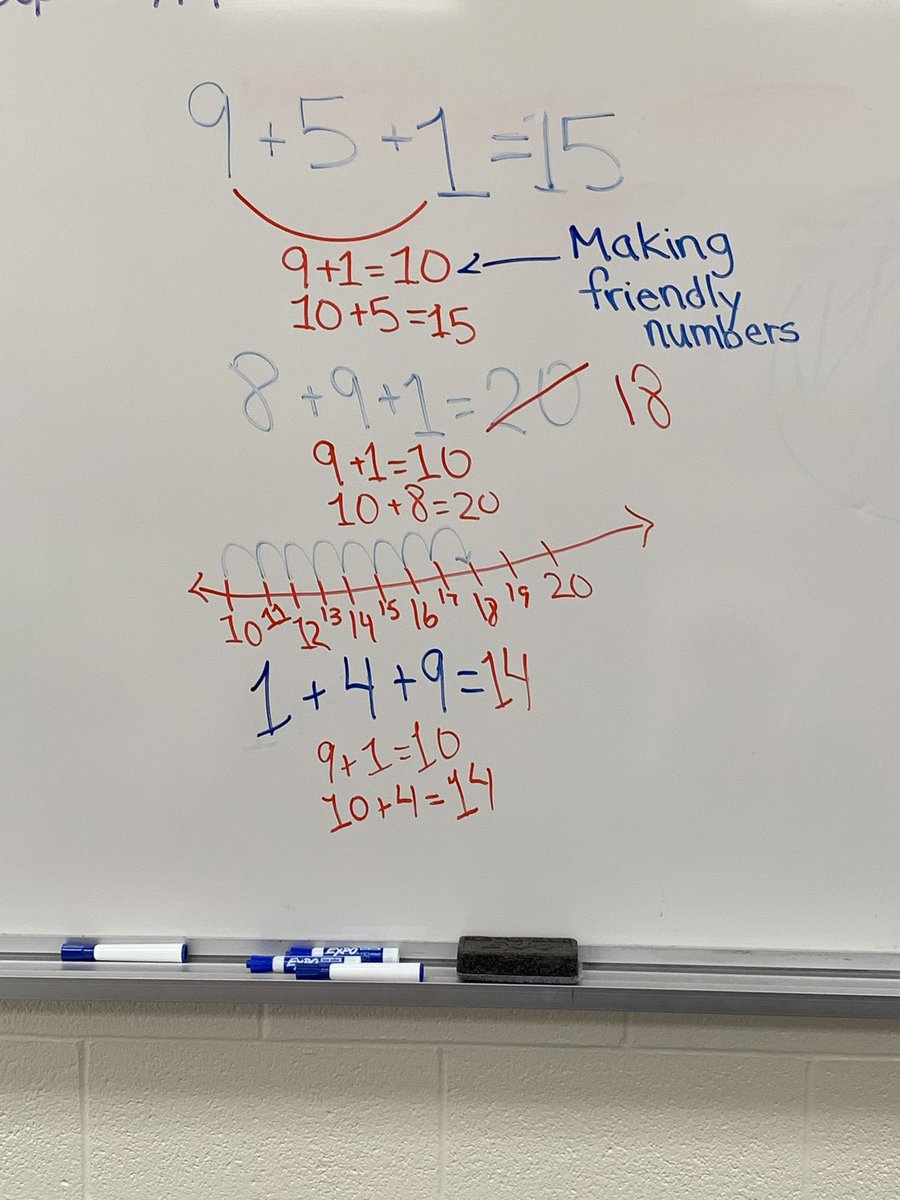 9+5+1=15
9+1=10 ← Making
friendly
numbers
10+5=15
8+9+1=20 18
9+1=10
10+8=20
10 11 12 13 14 15 16 17 18 19 20
1+4+9=14
9+1=10
10+4=14
EXPO
EXPO